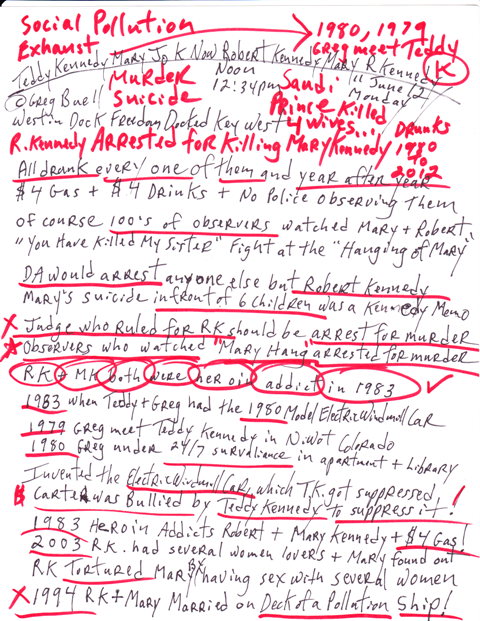 Social Pollution
Exhaust
1980, 1979
Greg meet Teddy
K
Teddy Kennedy Mary Jo K Now Robert Kennedy Mary R Kennedy
MuRdER
Suicide
Noon
12:34pm
Saudi
Prince Killed
4 wives...,
11 June/12
Monday
© Greg Buell
Westin Dock Freedom Docked Key West
Drunks
1980
to
2012
R. Kennedy Arrested for Killing Mary Kennedy
All drank every one of them and year after year
$4 Gas + $4 Drinks + No Police Observing Them
of course 100's of observers watched Mary + Robert
"You Have Killed My Sister" Fight at the "Hanging of Mary"
DA would arrest anyone else but Robert Kennedy
Mary's suicide infront of 6 children was a Kennedy Memo
X Judge who Ruled for RK should be arrest for murder
Observers who watched "Mary Hang" arrested for murder
RK + MK both were heroin addict in 1983
1983 when Teddy + Greg had the 1980 Model ElectricWindmillCar
1979 Greg meet Teddy Kennedy in Niwot Colorado
1980 Greg under 24/7 survaliance in apartment + Library
Invented the ElectricWindmillCar, which T.K. got suppressed
Carter was Bullied by Teddy Kennedy to suppress it!
1983 Heroin Addicts Robert + Mary Kennedy + $4 Gas!
2003 R.K. had several women lovers + Mary found out
RK Tortured Mary By having sex with several women
X 1994 RK + Mary Married on Deck of a Pollution Ship!